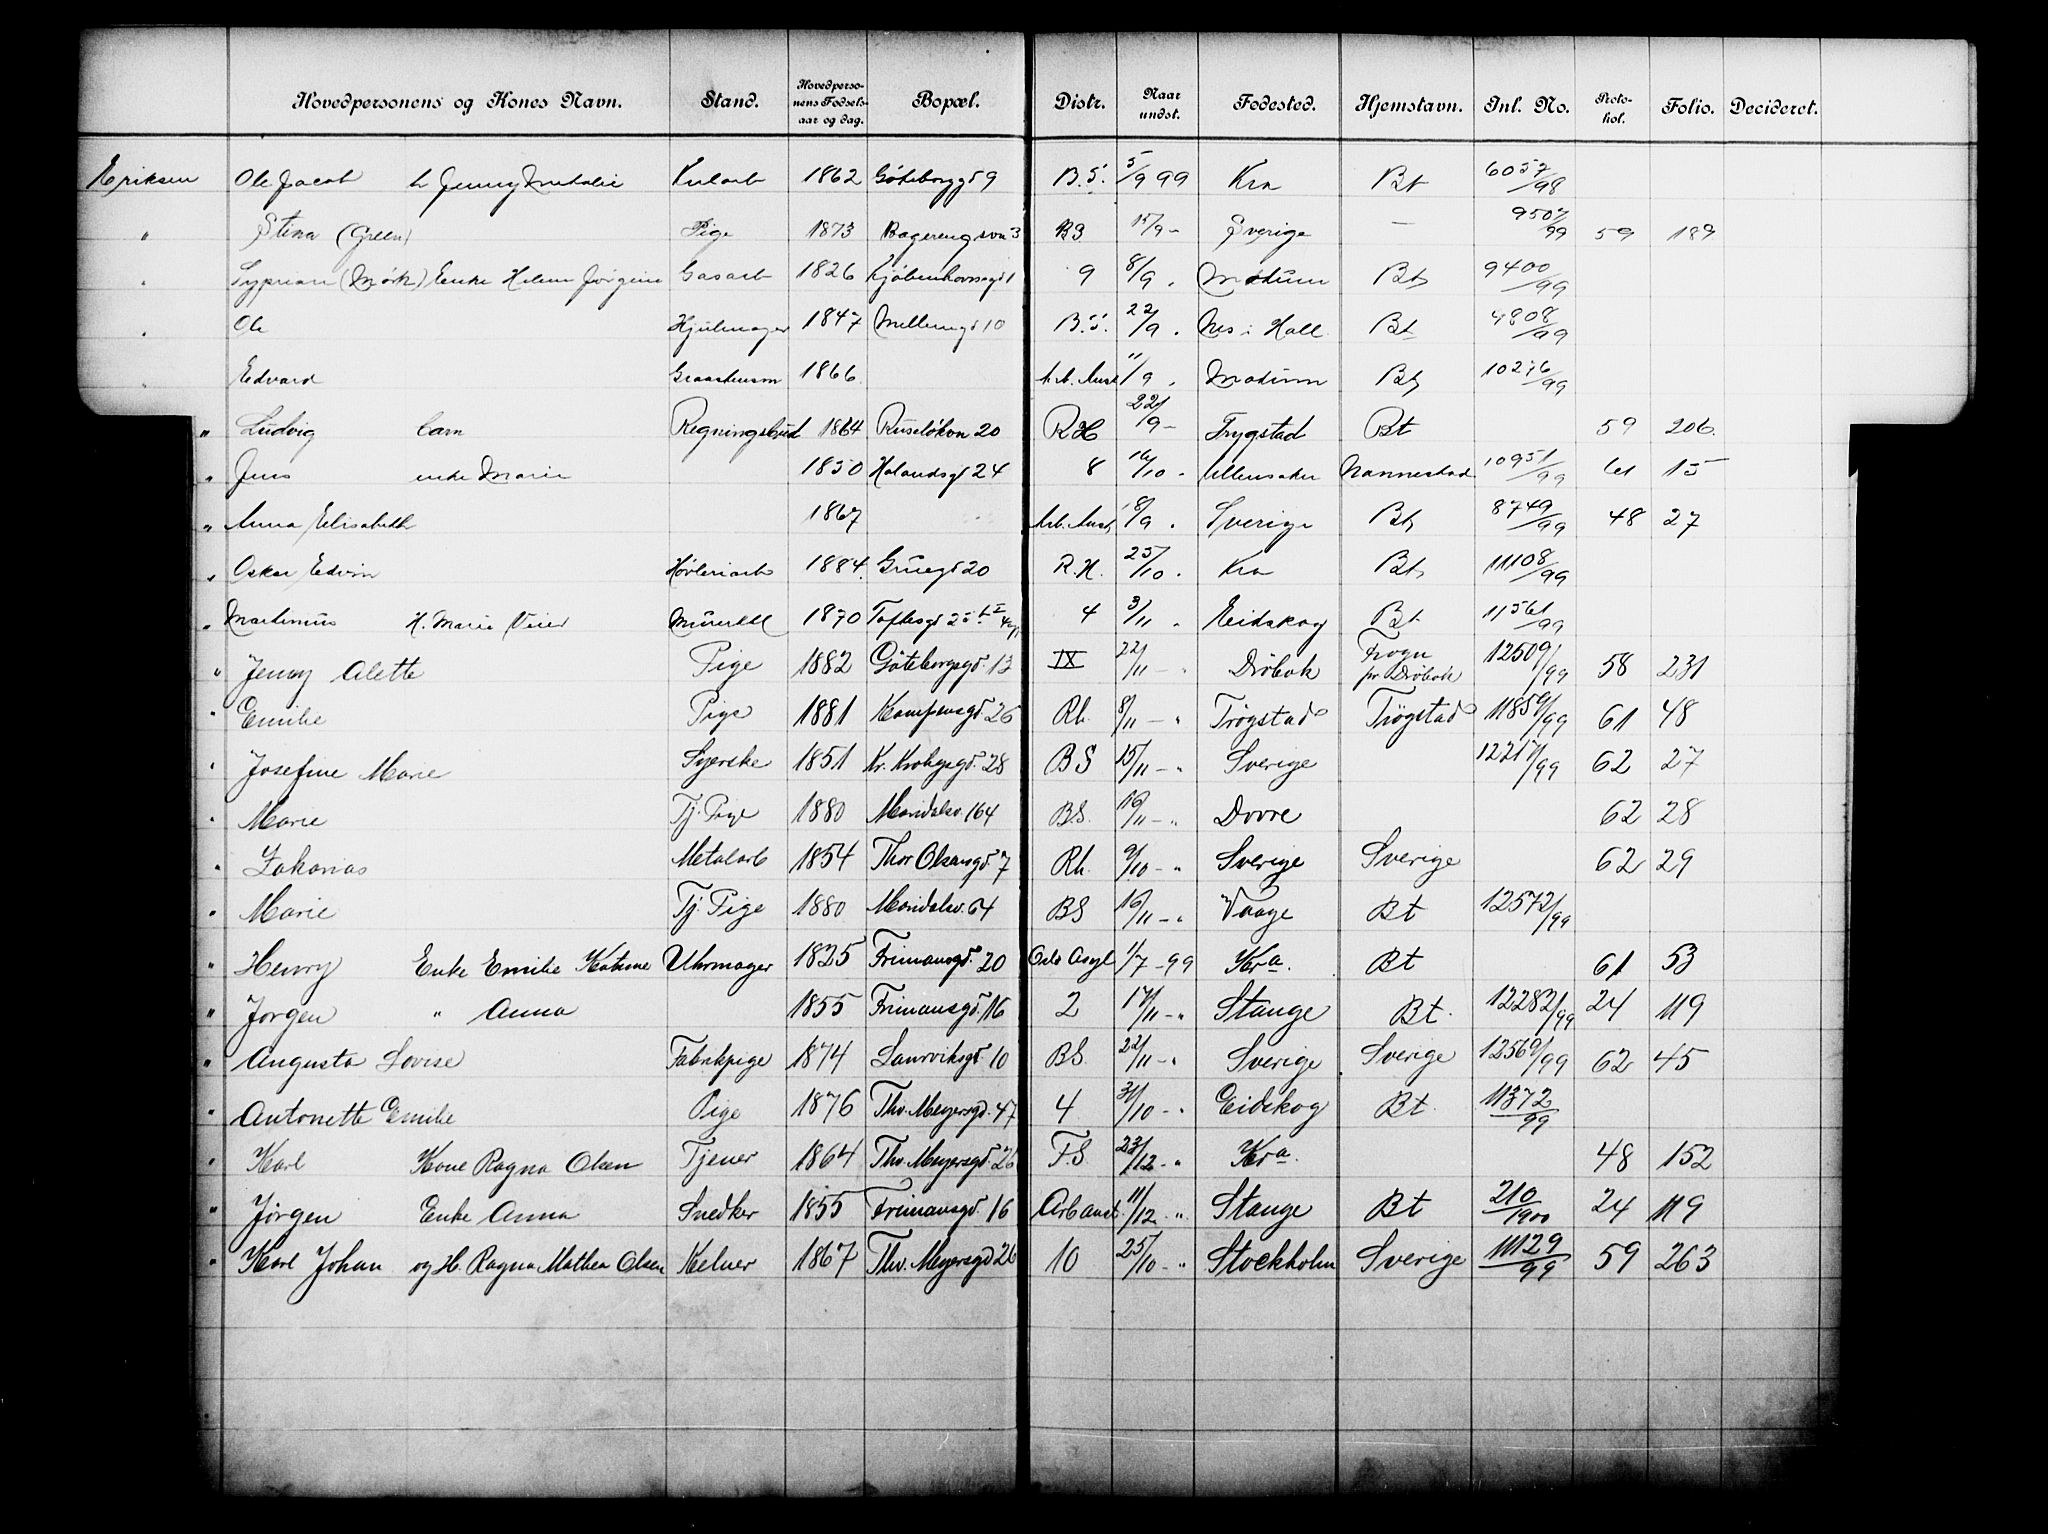 Hovedpersonens og Kones Navn. Stand. Hovedpersonens Fødselsaar og dag. Bopæl. Distr. Naar undst. Fødested. Hjemstavn. Inl. No. Protokol. Folio. Decideret.
Eriksen Ole Jacob h Jenny Mathalie Kularb 1862 Göteborggd 9 B.S. 5/9 99 Kra Bt 6057/98
" Stina (Green) Pige 1873 BS 15/9 - Sverige — 9507/99 59 189
" Syprian (Mørk) Enke Helene Jørgine Gasarb 1826 Kjøbenhavnsgd 1 9 8/9 " Modum Bt 9400/99
" Ole Hjulmager 1847 Møllergd 10 B.S. 22/9 " Nes i Hall. Bt 4808/99
" Edvard Graastensm 1866 Arb. Anst 11/9 " Modum Bt 10276/99
" Ludvig Carn Regningsbud 1864 Ruseløkvn 20 RH 22/9 - Trygstad Bt 59 206.
" Jens enke Marie 1850 Holandsgt 24 8 16/10 - Ullensaker Nannestad 10951/99 61 15
" Anna Elisabeth 1867 Arb. Anst 18/9 " Sverige Bt 8749/99 48 27
" Oskar Edvin Høvleriarb 1884 Grüegd 20 R.H. 25/10 " Kra Bt 11108/99
" Martinius H. Marie Veier Murarb 1870 Toftesgd 25 4 3/11 " Eidskog Bt 11561/99
" Jenny Alette Pige 1882 Göteborgsgd. 13 IX 22/11 - " Drøbak Frogn pr Drøbak 12509/99 58 231
" Emilie Pige 1881 Kampensgd. 26 Rh. 8/11 - " Trøgstad Trøgstad 11859/99 61 48
" Josefine Marie Syerske 1851 Kr. Krohgsgd. 28 BS 15/11 - " Sverige 12217/99 62 27
" Marie Tj. Pige 1880 Maridalsv. 164 B.S. 16/11 - " Dovre 62 28
" Zakarias Metalarb 1854 Thor Olsensgd. 7 Rh. 9/10 - " Sverige Sverige 62 29
" Marie Tj. Pige 1880 Maridalsv. 64 BS 16/11 - " Vaage Bt 12572/99
" Henry Enke Emilie Katrine Uhrmager 1825 Frimansgd. 20 Oslo Asyl 1/7 - 99 Kra. Bt 61 53
" Jørgen " Anna 1855 Frimansgd. 16 2 17/11 - " Stange Bt. 12282/99 24 119
" Augusta Lovise Fabrikpige 1874 Laurviksgd. 10 BS. 22/11 - " Sverige Sverige 12569/99 62 45
" Antonette Emilie Pige 1876 Thv. Meyersgd. 47 4 31/10 - " Eidskog Bt. 11372/99
" Karl Kone Ragna Olsen Tjener 1864 Thv. Meyersgd. 26 F.S. 23/12 - " Kra. 48 152
" Jørgen Enke Anna Snedker 1855 Frimansgd. 16 Arbanst. 11/12 - " Stange Bt 210/1900 24 119
" Karl Johan og H. Ragna Mathea Olsen Kelner 1867 Thv. Meyersgd 26 10 25/10 - " Stockholm Sverige 11129/99 59 263